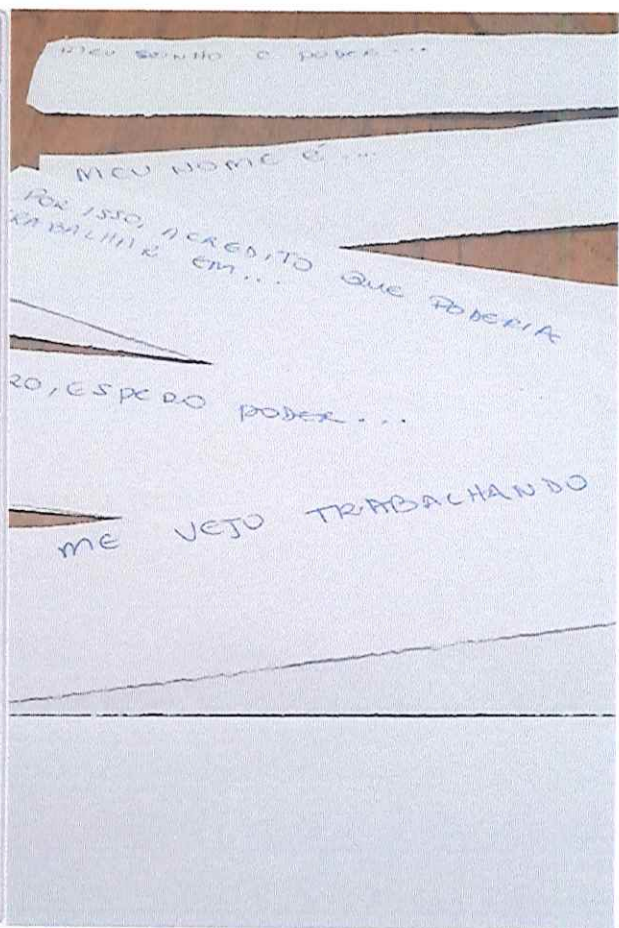 MEU SONHO É PODER...
MEU NOME É...
POR ISSO, ACREDITO QUE PODERIA
TRABALHAR EM...
RO, ESPERO PODER...
ME VEJO TRABALHANDO